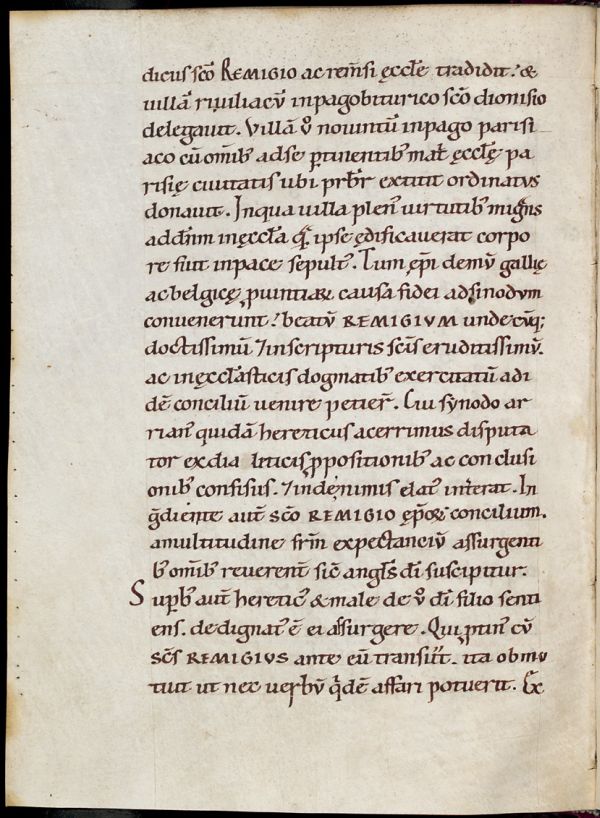 dicus scō REMIGIO ac rem̄si ęccłę tradidit. &
uillā riuiliacū inpagobiturico scō dionisio
delegauit. Villā v̊ nouientū inpago parisi
aco cū om̄ib; adse p̱tinentib; mat̄ ęccłę pa
risię ciuitatis ubi prb̄r extitit ordinatus
donauit. Inqua uilla plen᾽ uirtutib; mignis
addn̄m inęccłā q̄ ipse ędificauerat corpo
re fuit inpace sepult᾽. Tum ep̄i demū gallię
acbelgicę puintiaꝝ causa fidei adsinodum
conuenerunt. beatū REMIGIVM undecūq;
doctissimū ⁊inscripturis sc̄is eruditissimū.
ac inęccłasticis dogmatib; exercitatū adi
dē conciliū uenire petier̄. Cui synodo ar
rian᾽ quidā hereticus acerrimus disputa
tor exdialeticis ꝓpositionib; ac conclusi
onib; confisus. ⁊indęnimis elat᾽ int̄erat. In
g̊diente aut̄ scō REMIGIO ep̄oꝝ concilium.
amultitudine fr̄m expectanciū assurgenti
b; om̄ib; reuerent᾽ sic̄ angłs dī suscipitur.
Sup̱b; aut̄ heretic᾽ & male de v̊ dī filio senti
ens. dedignat᾽ ē ei assurgere. Qui ꝓtin᾽ cū
sc̄s REMIGIVS ante eū transiit. ita obmu
tuit ut nec uerbū q̇dē affari potuerit. Ex